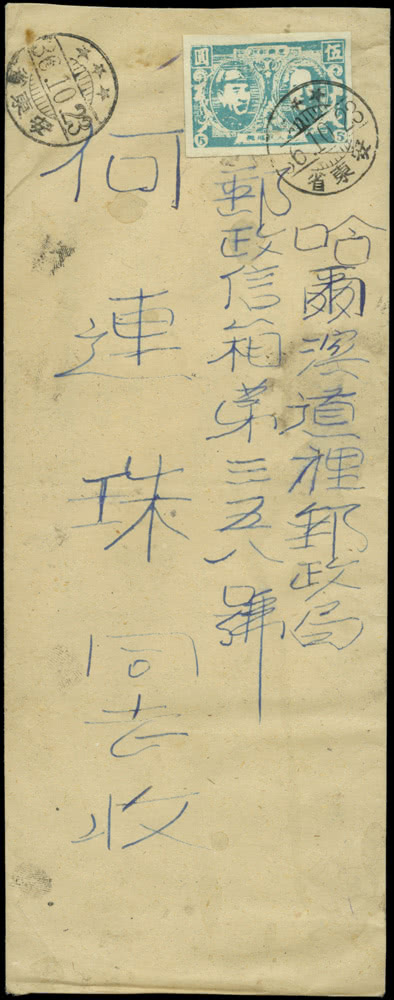 哈爾濱道裡郵政局
郵政信箱第三五八號
何連珠同志收
伍
圓
5
5
36.10.23
安東省
安東省